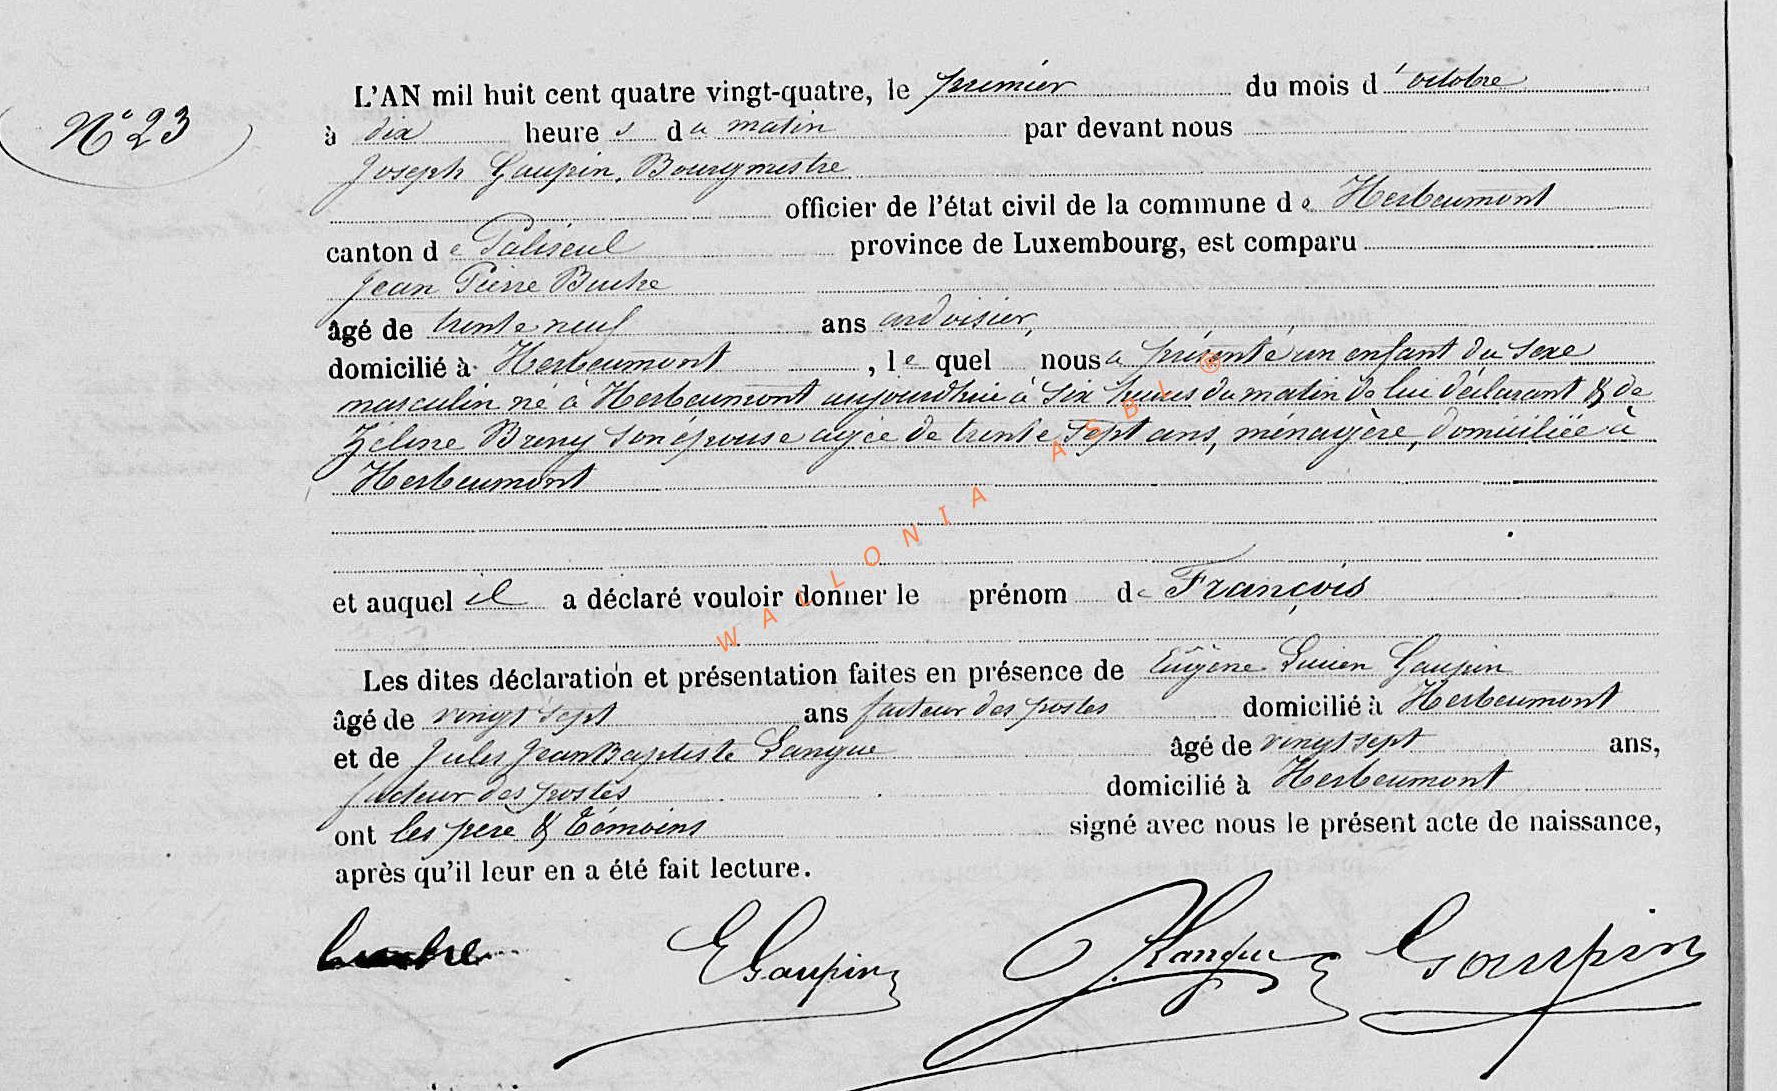 L'AN mil huit cent quatre vingt-quatre, le premier du mois d'octobre
N° 23
à dix heures du matin par devant nous
Joseph Gaupin, Bourgmestre
officier de l'état civil de la commune de Herbeumont
canton de Paliseul province de Luxembourg, est comparu
Jean Pierre Buche
âgé de trente neuf ans ardoisier,
domicilié à Herbeumont, lequel nous a présenté un enfant du sexe
masculin né à Herbeumont aujourdhui à six heures du matin de lui déclarant & de
Zéline Breny son épouse agée de trente sept ans, ménagère, domiciliée à
Herbeumont
et auquel il a déclaré vouloir donner le prénom de François
Les dites déclaration et présentation faites en présence de Eugène Lucien Gaupin
âgé de vingt sept ans facteur des postes domicilié à Herbeumont
et de Jules Jean Baptiste Langue âgé de vingt sept ans,
facteur des postes domicilié à Herbeumont
ont les père & témoins signé avec nous le présent acte de naissance,
après qu'il leur en a été fait lecture.
E Gaupin J. Langue Gaupin
WALLONIA ASBL ®